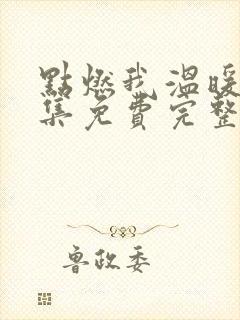 點燃我溫暖
集免費完整
魯政委